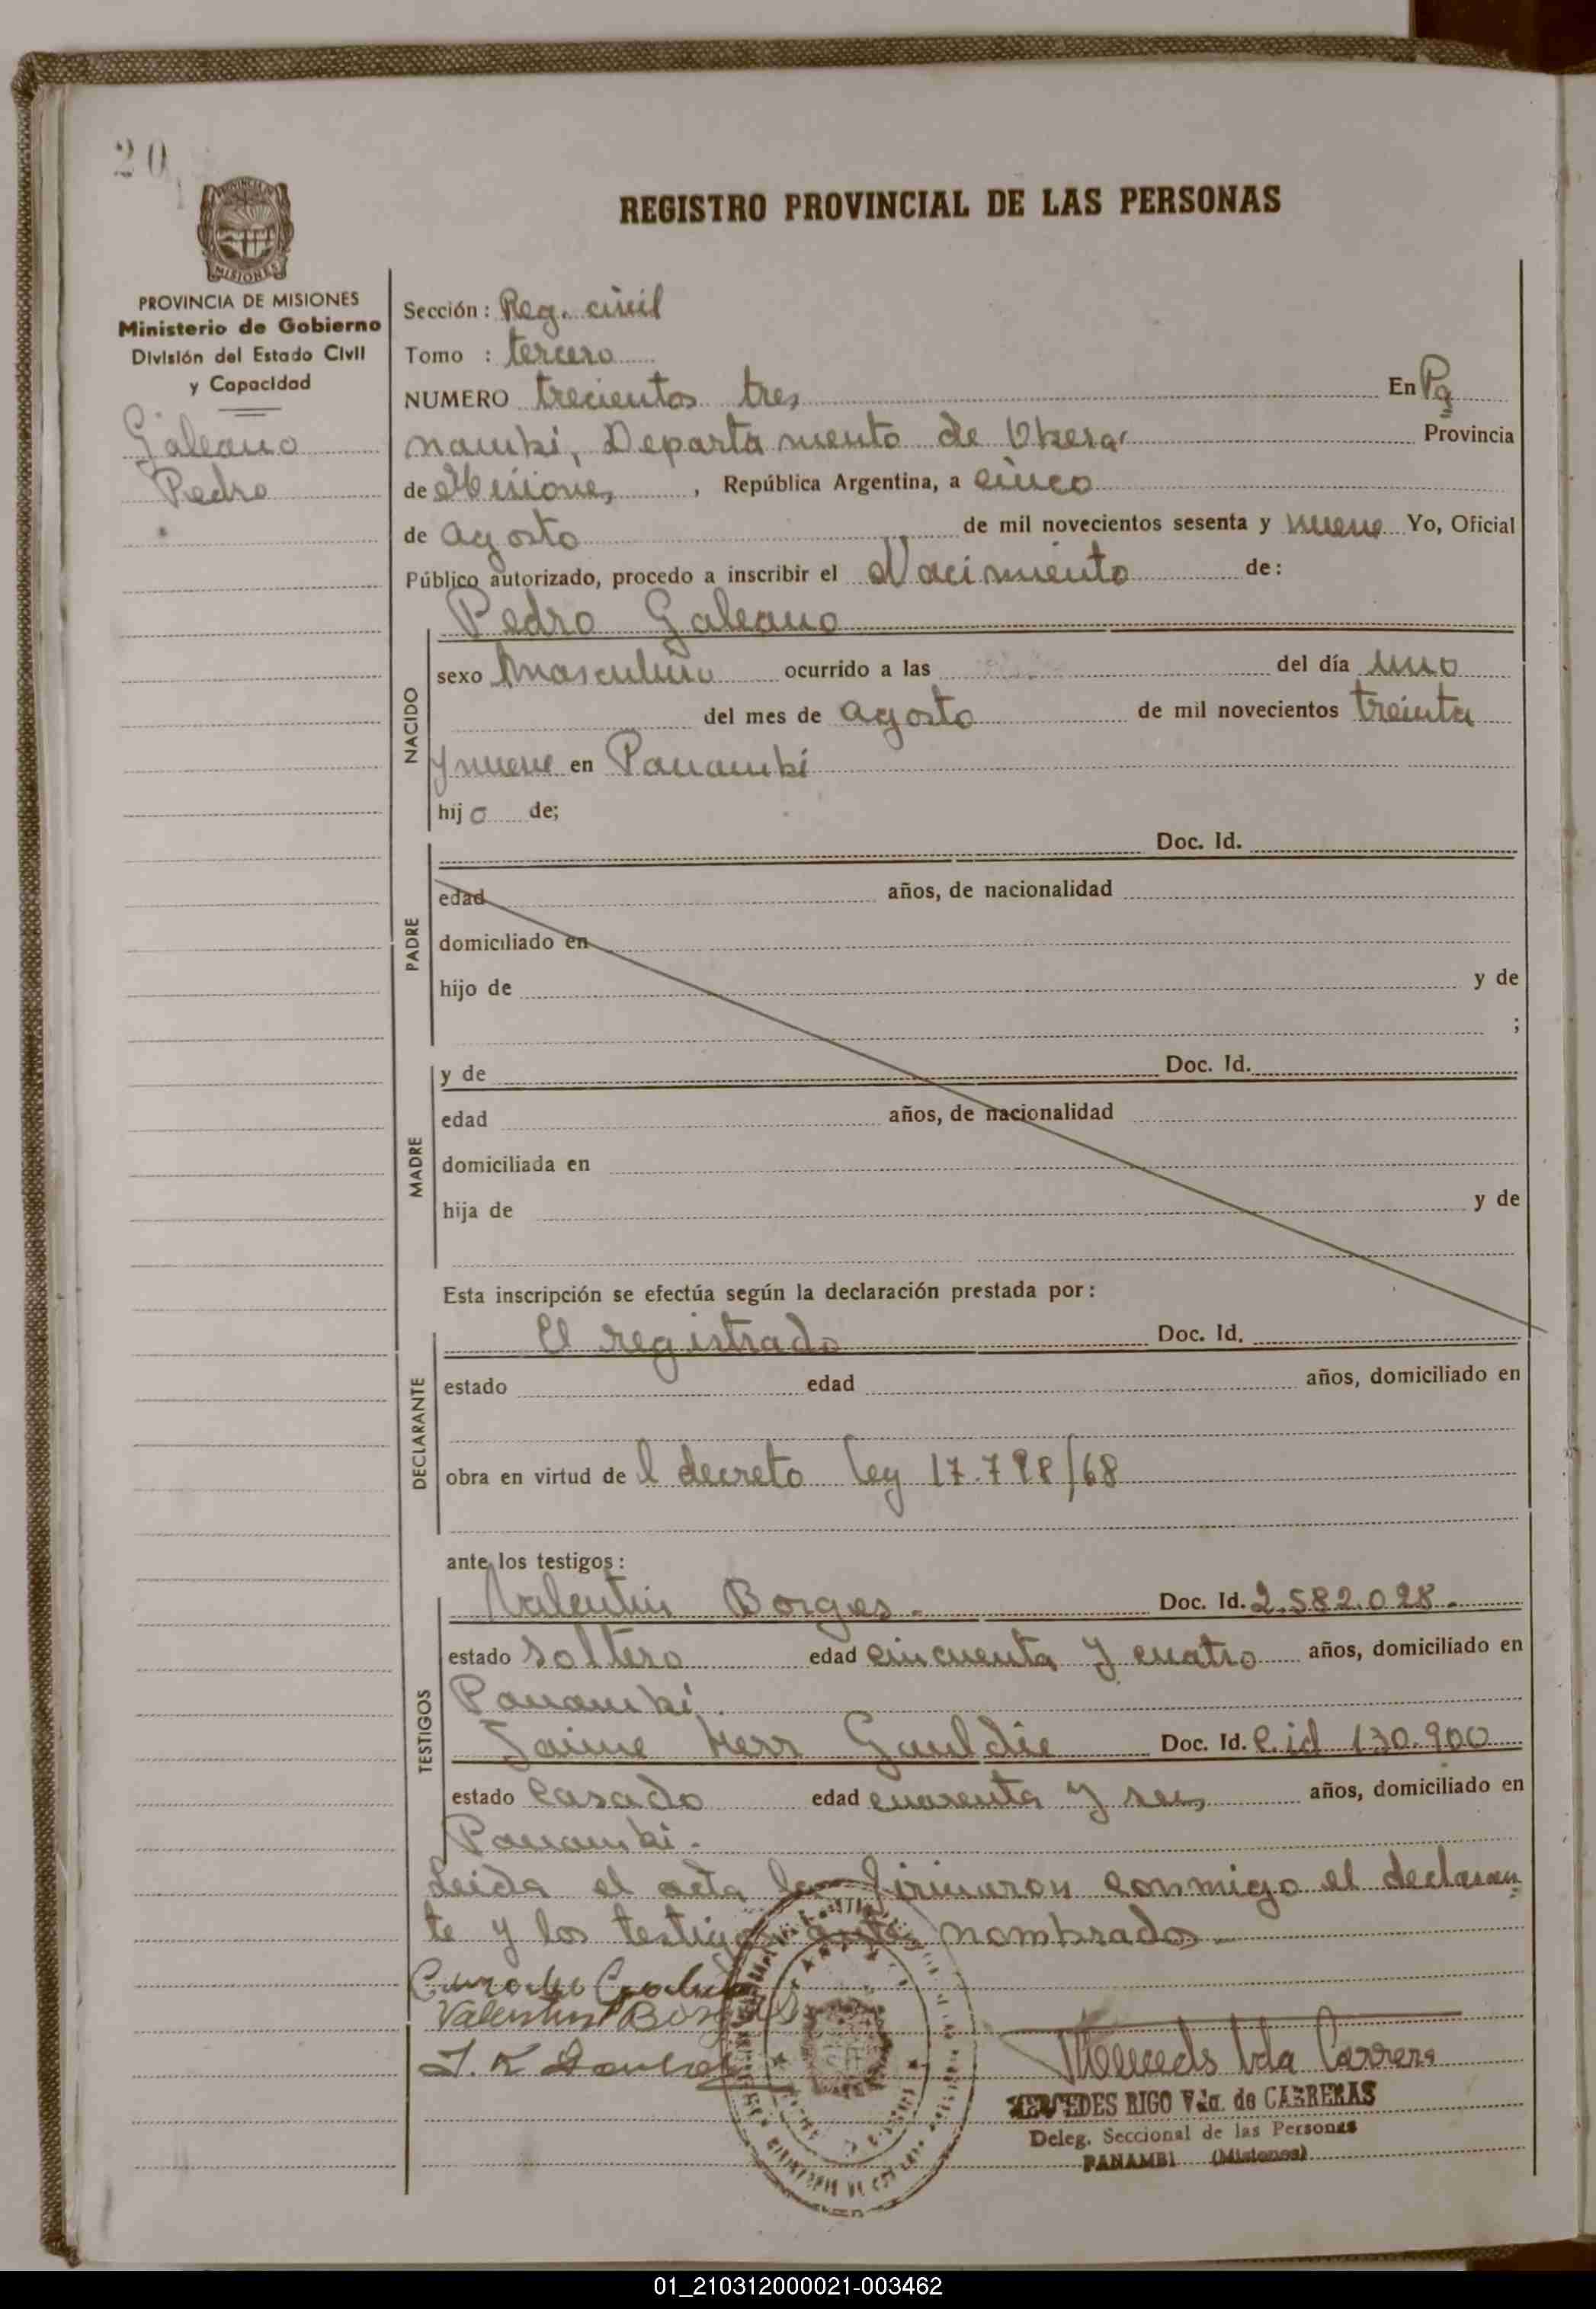 20
REGISTRO PROVINCIAL DE LAS PERSONAS
PROVINCIA DE MISIONES
Ministerio de Gobierno
División del Estado Civil
y Capacidad
Galeano
Pedro
Sección: Reg. civil
Tomo : tercero
NUMERO trecientos tres En Pa
nambi, Departamento de Obera Provincia
de Misiones, República Argentina, a cinco
de agosto de mil novecientos sesenta y nueve Yo, Oficial
Público autorizado, procedo a inscribir el Nacimiento de:
Pedro Galeano
NACIDO
sexo Masculino ocurrido a las del día uno
del mes de agosto de mil novecientos treinta
y nueve en Panambi
hijo de;
PADRE
Doc. Id.
edad años, de nacionalidad
domiciliado en
hijo de y de
;
MADRE
y de Doc. Id.
edad años, de nacionalidad
domiciliada en
hija de y de
Esta inscripción se efectúa según la declaración prestada por:
DECLARANTE
El registrado Doc. Id.
estado edad años, domiciliado en
obra en virtud de l decreto ley 17.798/68
ante los testigos:
TESTIGOS
Valentin Borges.- Doc. Id. 2.582.028.
estado soltero edad cincuenta y cuatro años, domiciliado en
Panambi.
Jaime Kerr Gauldie Doc. Id. C.id 130.900
estado casado edad cuarenta y seis años, domiciliado en
Panambi.-
Leida el acta la firmaron conmigo el declaran
te y los testigos antes nombrados.-
Valentin Borges
J. K.
Mercedes Vda Carreras
MERCEDES RIGO Vda. de CARRERAS
Deleg. Seccional de las Personas
PANAMBI (Misiones)
01_210312000021-003462